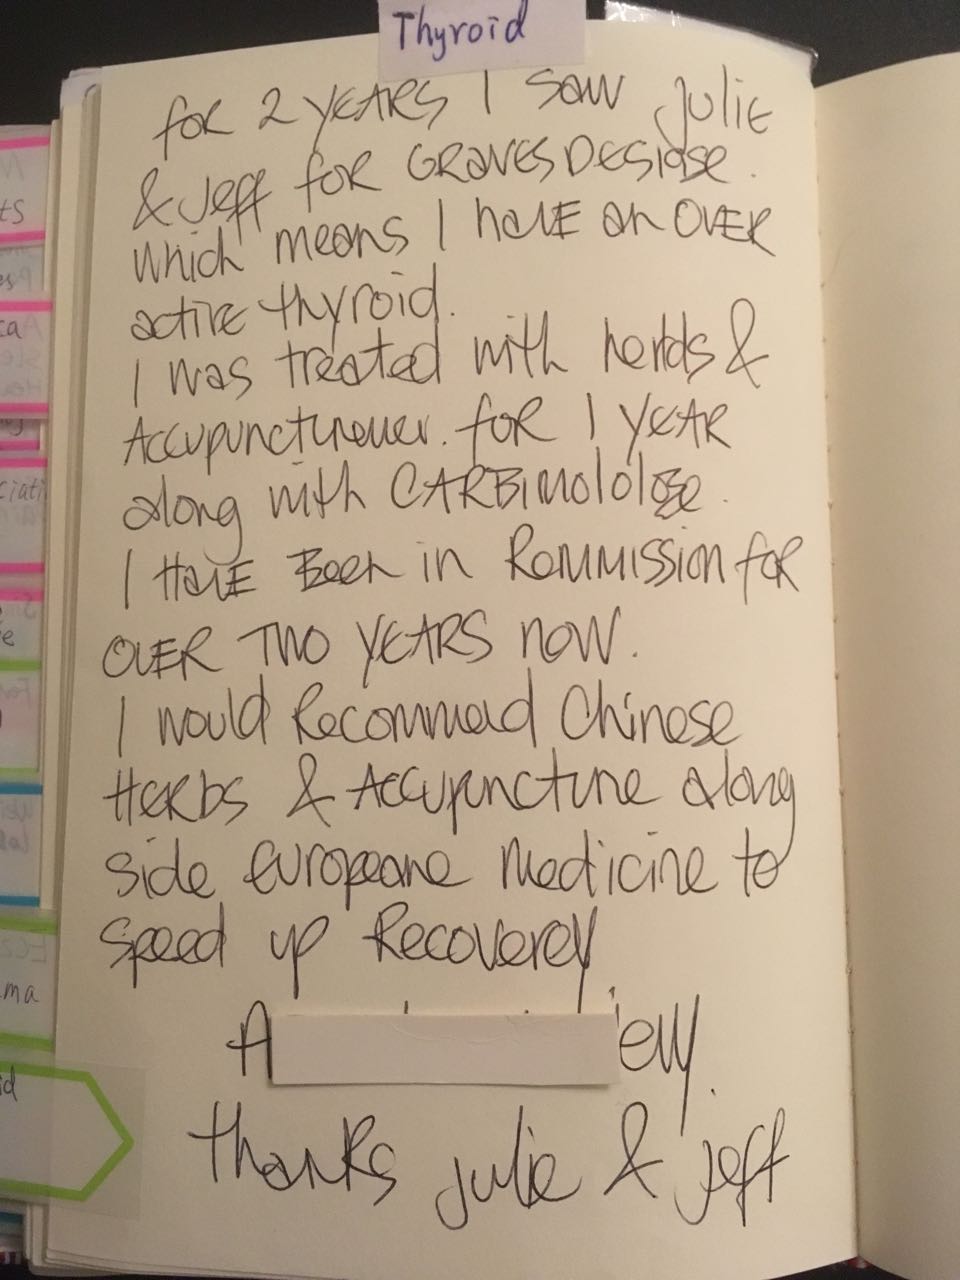 Thyroid
for 2 YEARS I saw Julie
& Jeff for GRAVES DESIASE.
which means I have an OVER
active thyroid.
I was treated with herbs &
Accupuncturener. for 1 YEAR
along with CARBIMOLOLOZE.
I HAVE BEEN in REMMISSION for
OVER TWO YEARS now.
I would Recommead Chinese
Herbs & Accupuncture along
side europeane medicine to
speed up Recoverey
A
thanks Julie & Jeff